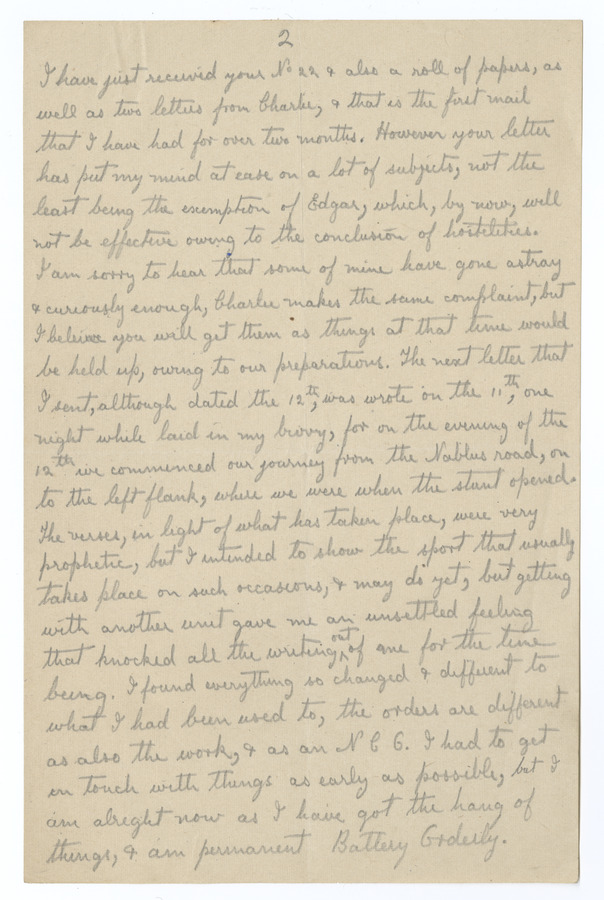 2
I have just received your No 22 & also a roll of papers, as
well as two letters from Charlie, & that is the first mail
that I have had for over two months. However your letter
has put my mind at ease on a lot of subjects, not the
least being the exemption of Edgar, which, by now, will
not be effective owing to the conclusion of hostilities.
I am sorry to hear that some of mine have gone astray
& curiously enough, Charlie makes the same complaint, but
I beleive you will get them as things at that time would
be held up, owing to our preparations. The next letter that
I sent, although dated the 12th, was wrote on the 11th, one
night while laid in my bivvy, for on the evening of the
12th we commenced our journey from the Nablus road, on
to the left flank, where we were when the stunt opened.
The verses, in light of what has taken place, were very
prophetic, but I intended to show the sport that usually
takes place on such occasions, & may do yet, but getting
with another unit gave me an unsettled feeling
that knocked all the writing out of me for the time
being. I found everything so changed & different to
what I had been used to, the orders are different
as also the work, & as an N C O. I had to get
in touch with things as early as possible, but I
am alreght now as I have got the hang of
things, & am permanent Battery Orderly.